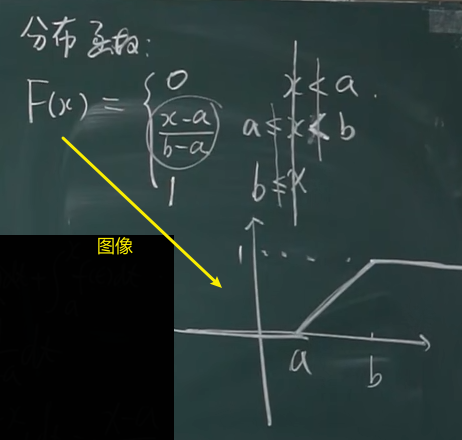 分布函数:
F(x) = { 0  x < a.
x-a / b-a  a ≤ x < b
1  b ≤ x
图像
1
a
b